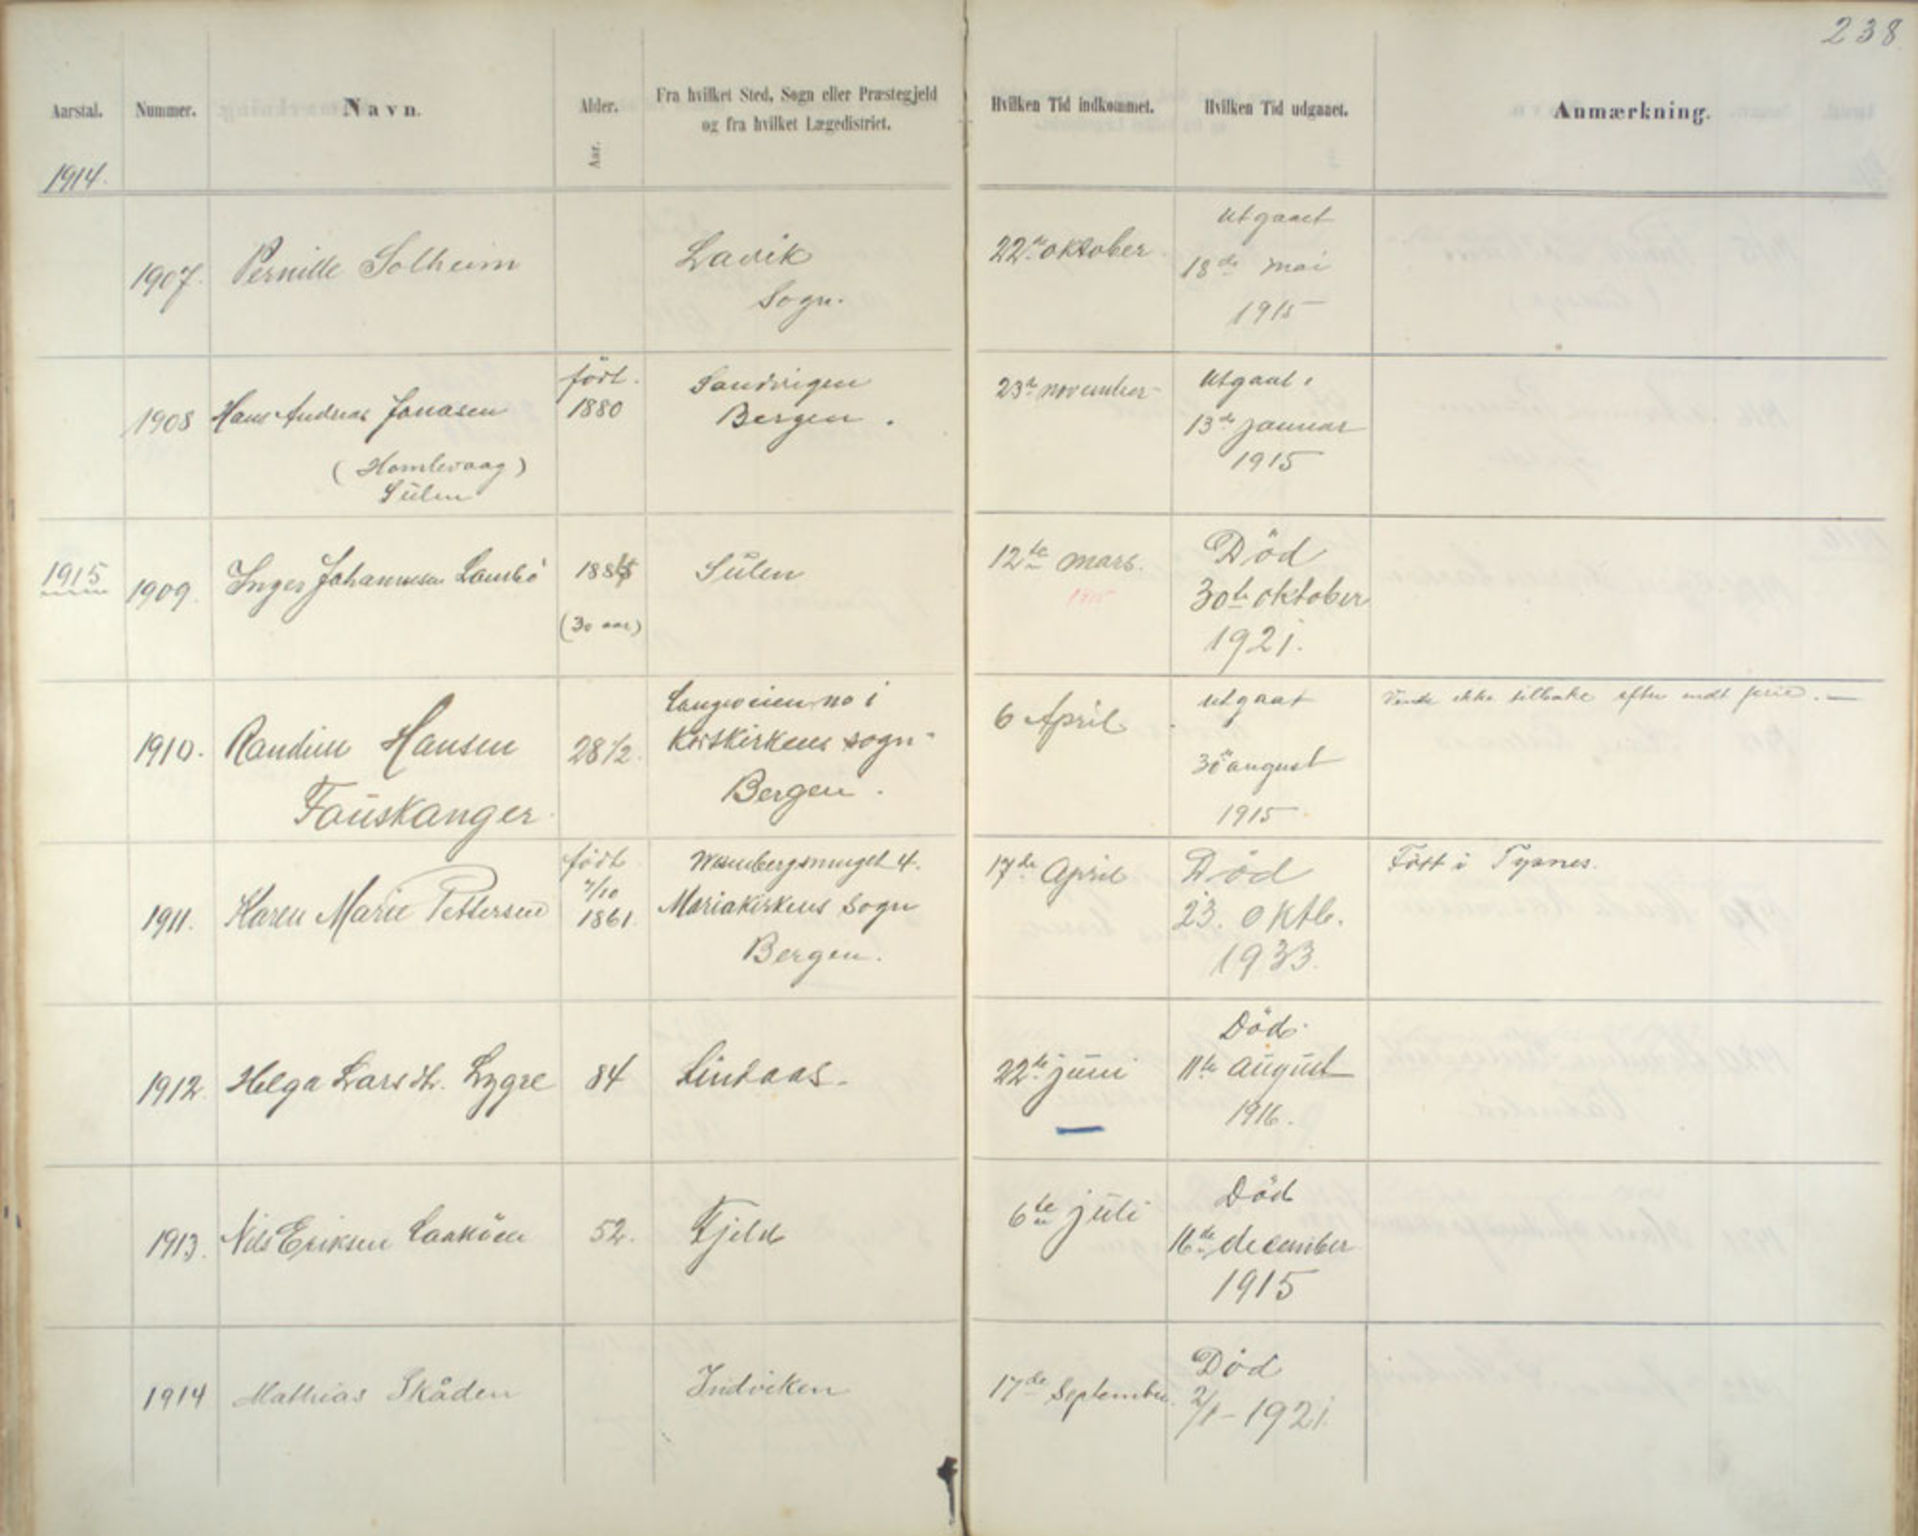 238
Aarstal.
Nummer.
Navn.
Alder.
Aar.
Fra hvilket Sted, Sogn eller Præstegjeld
og fra hvilket Lægedistrict.
Hvilken Tid indkommet.
Hvilken Tid udgaaet.
Anmærkning.
1914.
1907.
Pernille Solheim
Lavik
Sogn.
22de oktober
Utgaaet
18de mai
1915
1908
Hans Andreas Jonasen
(Homlevaag)
Sulen
født.
1880
Sandvigen
Bergen.
23de november
Utgaat.
13de januar
1915
1915
1909.
Inger Johannesen
(30 aar)
Sulen
12te mars.
1915
Død
30te oktober
1921.
1910.
Randine Hansen
Fauskanger
28 1/2.
Langeveien no 1
Korskirkens sogn
Bergen.
6 April
utgaat
30 august
1915
ikke tilbake efter endt ferie.
1911.
Karen Marie Pettersen
født
7/10
1861.
4.
Mariakirkens Sogn
Bergen.
17de April
Død
23. oktb.
1933.
Født i Tysnes.
1912
Helga Larsdtr. Lygre
84
Lindaas
22de juni
Død
11te august
1916.
1913.
Nils Eriksen
52.
Fjeld
6te juli
Død
16de december
1915
1914
Mathias Skåden
Indviken
17de September
Død
2/1-1921